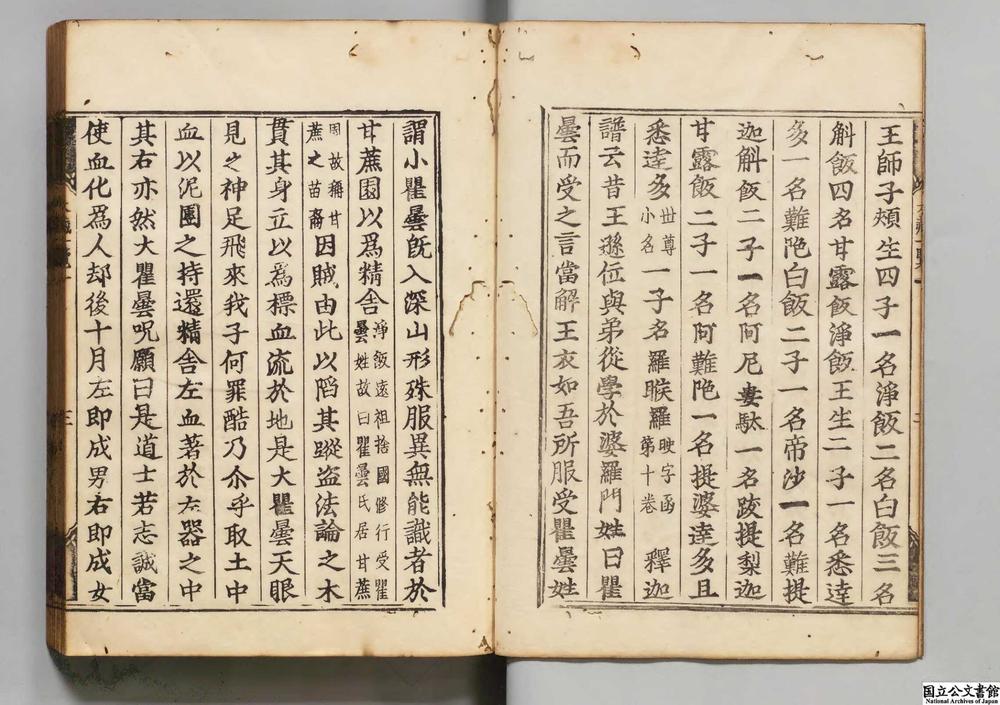 王師子頰生四子一名淨飯二名白飯三名
斛飯四名甘露飯淨飯王生二子一名悉達
多一名難陁白飯二子一名帝沙一名難提
迦斛飯二子一名阿尼婁馱一名跋提梨迦
甘露飯二子一名阿難陁一名提婆達多且
悉達多世尊小名一子名羅睺羅映字函第十卷釋迦
譜云昔王遜位與弟從學於婆羅門姓曰瞿
曇而受之言當解王衣如吾所服受瞿曇姓
謂小瞿曇旣入深山形殊服異無能識者於
甘蔗園以爲精舍淨飯遠祖捨國修行受瞿曇姓故曰瞿曇氏居甘蔗
園故稱甘蔗之苗裔因賊由此以䧟其蹤盜法論之木
貫其身立以爲標血流於地是大瞿曇天眼
見之神足飛來我子何罪酷乃尒乎取土中
血以泥團之持還精舍左血著於左器之中
其右亦然大瞿曇呪願曰是道士若志誠當
使血化爲人却後十月左即成男右即成女
国立公文書館
National Archives of Japan